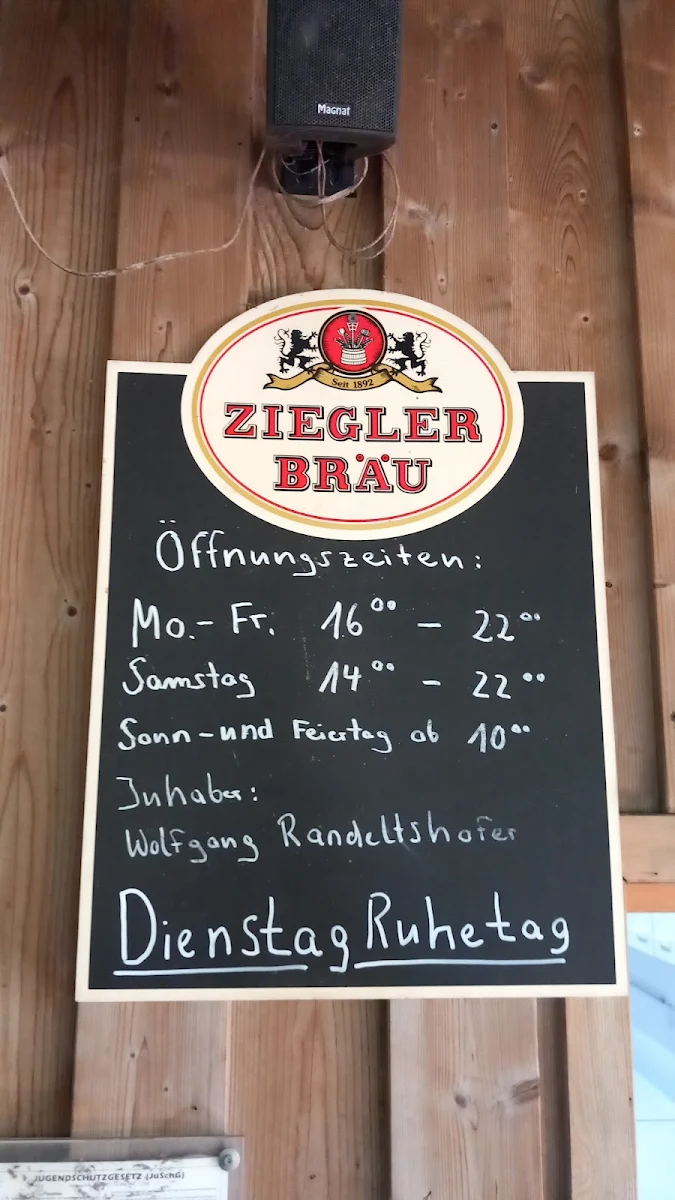 Magnat
Seit 1892
ZIEGLER
BRÄU
Öffnungszeiten:
Mo.- Fr. 16⁰⁰ - 22⁰⁰
Samstag 14⁰⁰ - 22⁰⁰
Sonn-und Feiertag ab 10⁰⁰
Inhaber:
Wolfgang Randeltshofer
Dienstag Ruhetag
JUGENDSCHUTZGESETZ (JuSchG)